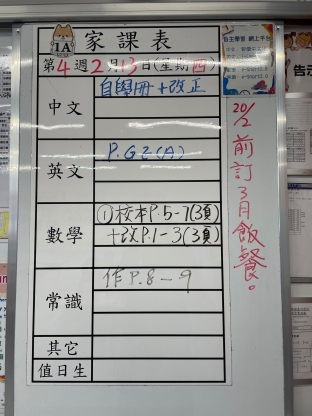 1A
家課表
第4週2月13日(星期四)
中文
自學冊+改正
英文
P.G2(A)
數學
①校本P.5-7(3頁)
+改P.1-3(3頁)
常識
作P.8-9
其它
值日生
自主學習 網上平台
20/2前訂3月飯餐。
告示